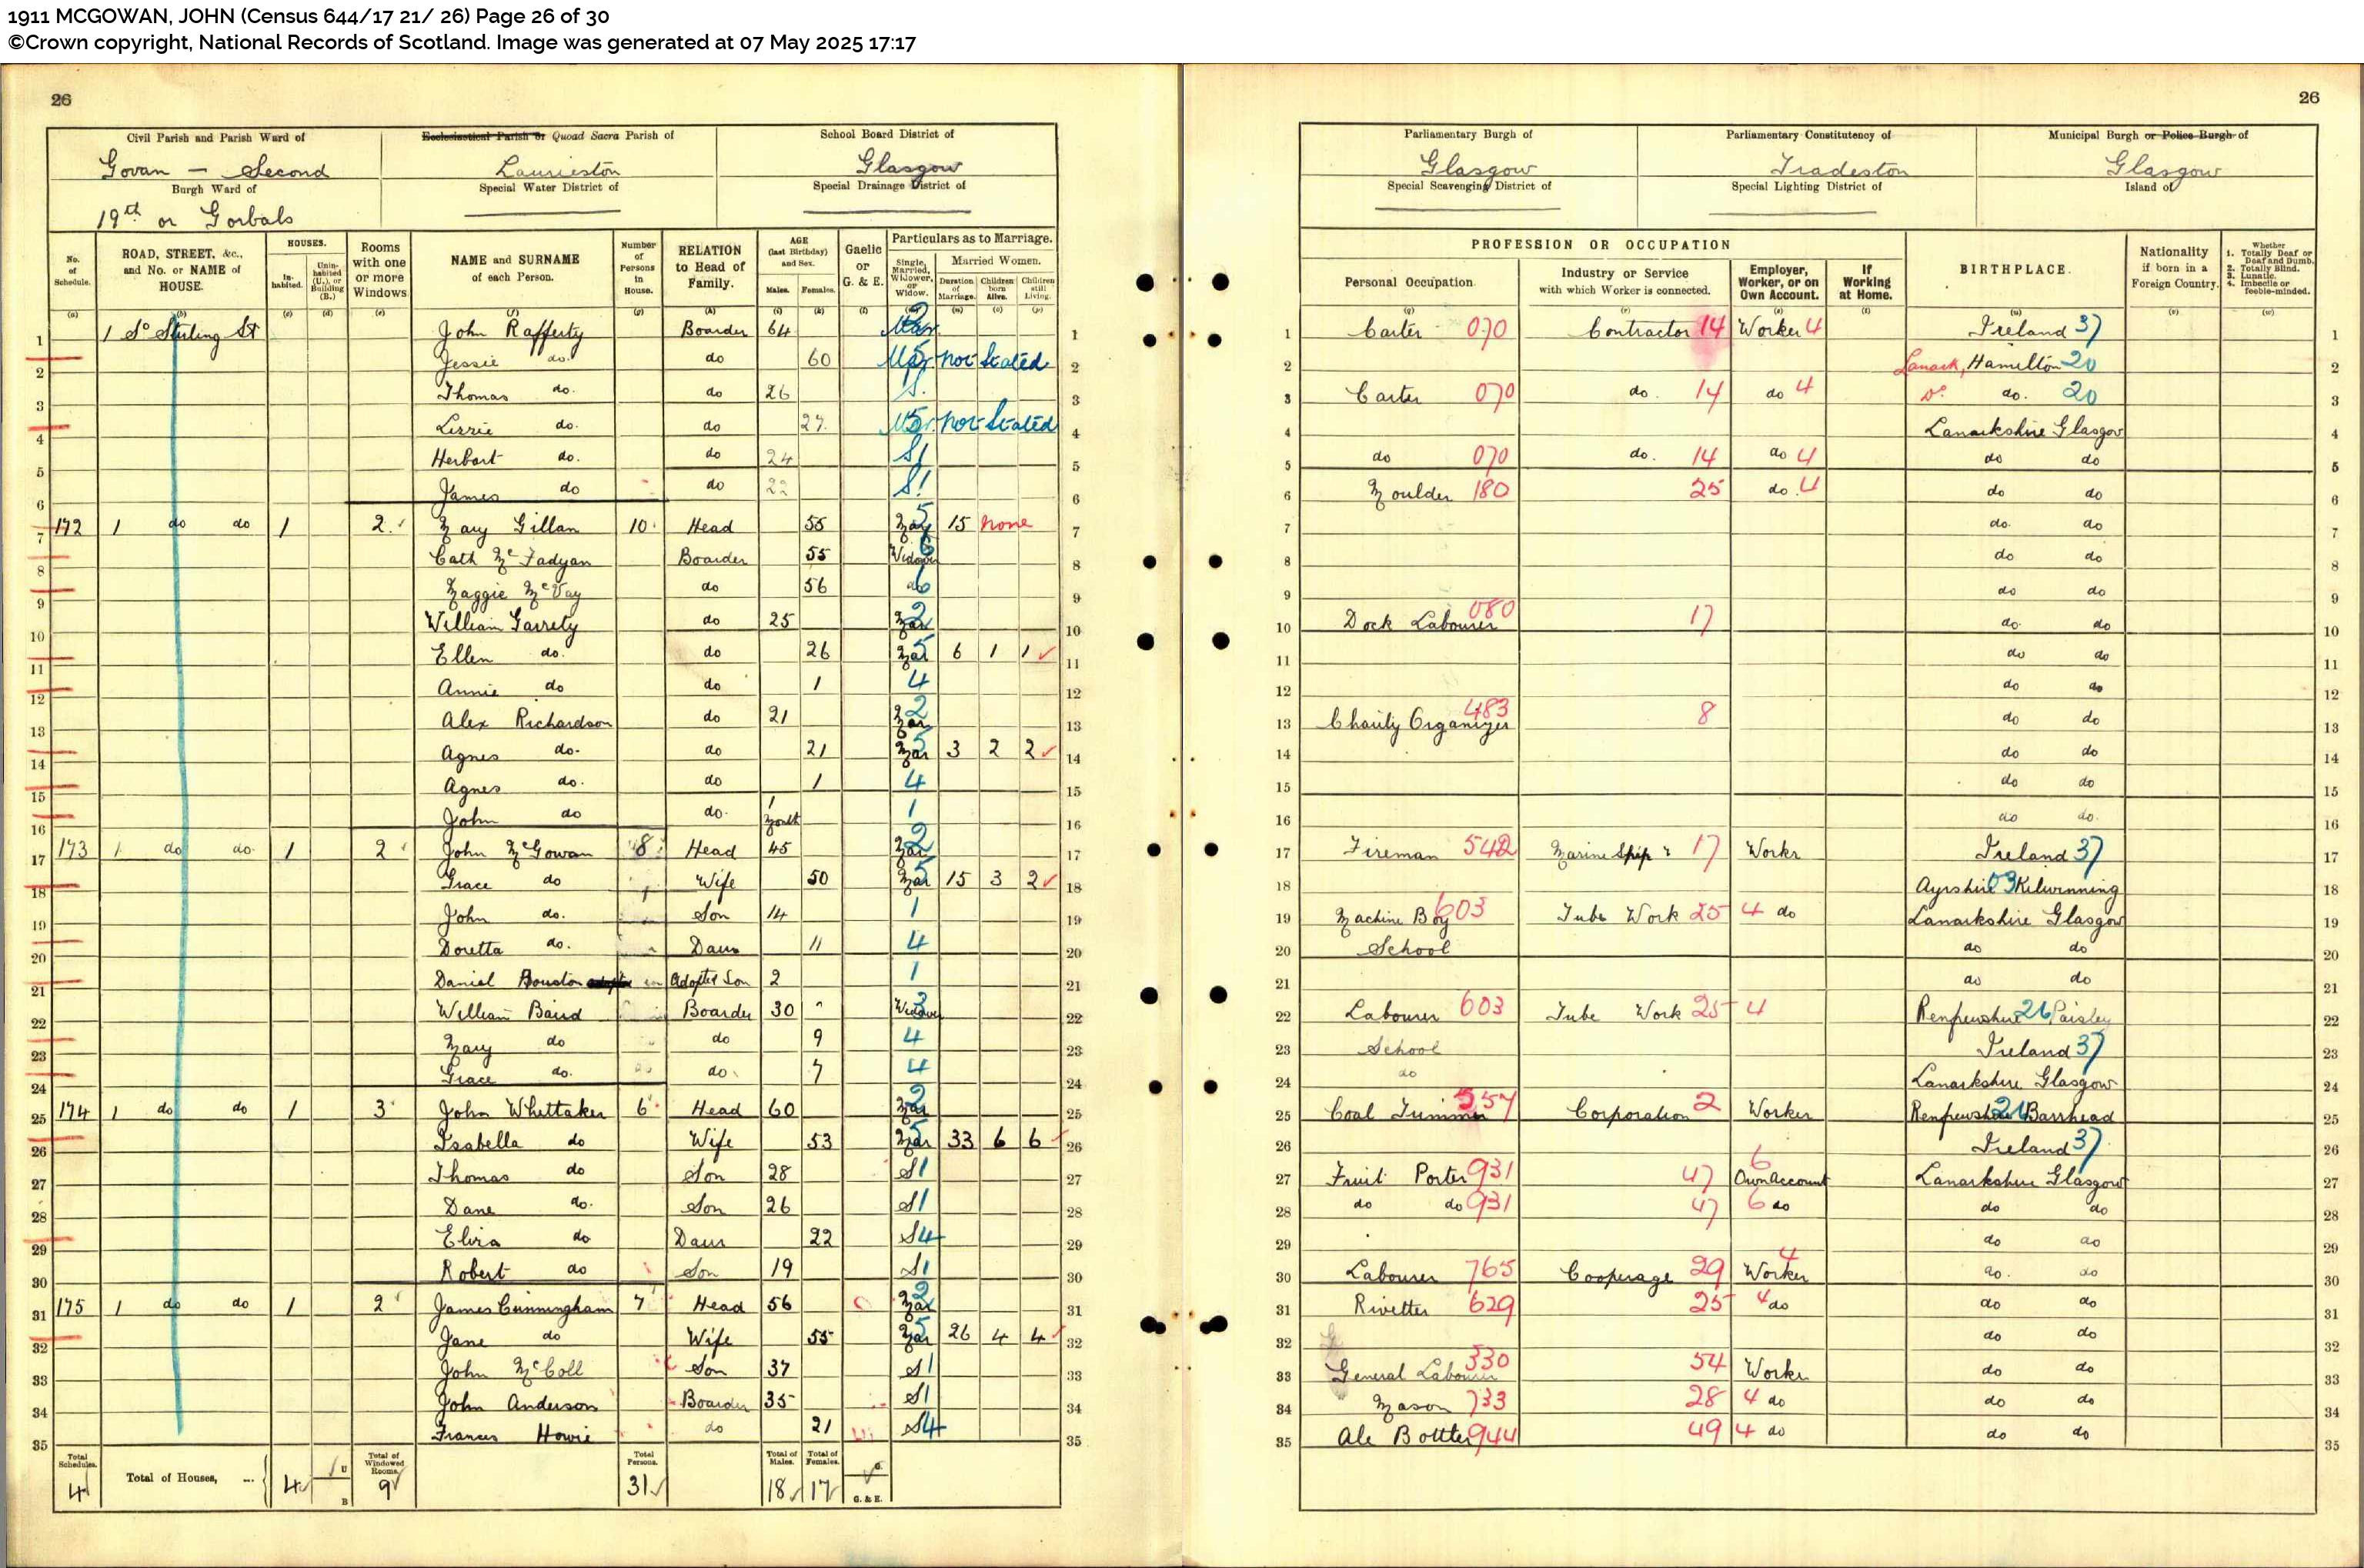 1911 MCGOWAN, JOHN (Census 644/17 21/ 26) Page 26 of 30
©Crown copyright, National Records of Scotland. Image was generated at 07 May 2025 17:17
26 26
Civil Parish and Parish Ward of Ecclesiastical Parish or Quoad Sacra Parish of School Board District of Parliamentary Burgh of Parliamentary Constitutency of Municipal Burgh or Police Burgh of
Govan — Second Laurieston Glasgow Glasgow Tradeston Glasgow
Burgh Ward of Special Water District of Special Drainage District of Special Scavenging District of Special Lighting District of Island of
19th or Gorbals
No. of Schedule. ROAD, STREET, &c., and No. or NAME of HOUSE. HOUSES. Inhabited. Uninhabited (U.), or Building (B.) Rooms with one or more Windows NAME and SURNAME of each Person. Number of Persons in House. RELATION to Head of Family. AGE (last Birthday) and Sex. Males. Females. Gaelic or G. & E. Particulars as to Marriage. Single, Married, Widower, or Widow. Married Women. Duration of Marriage. Children born Alive. Children still Living.
PROFESSION OR OCCUPATION Personal Occupation. Industry or Service with which Worker is connected. Employer, Worker, or on Own Account. If Working at Home. BIRTHPLACE. Nationality if born in a Foreign Country. Whether 1. Totally Deaf or Deaf and Dumb. 2. Totally Blind. 3. Lunatic. 4. Imbecile or feeble-minded.
1 1 So Stirling St John Rafferty Boarder 64 Mar 2 1 Carter 070 Contractor 14 Worker 4 Ireland 37 1
2 Jessie do. do 60 Mar 5 not Stated 2 Lanark, Hamilton 20 2
3 Thomas do. do 26 S. 3 Carter 070 do. 14 do 4 Do. do. 20 3
4 Lizzie do. do 27. Mar 5 not Stated 4 Lanarkshire Glasgow 4
5 Herbert do. do 24 S 1 5 do 070 do. 14 do 4 do do 5
6 James do do 22 S 1 6 Moulder 180 25 do. 4 do do 6
7 172 1 do do 1 2 Mary Gillan 10 Head 55 Mar 5 15 none 7 do. do 7
8 Cath McFadyan Boarder 55 Widow 6 8 do do 8
9 Maggie McVay do 56 do 6 9 do do 9
10 William Garrety do 25 Mar 2 10 Dock Labourer 080 17 do. do 10
11 Ellen do. do 26 Mar 5 6 1 1 11 do do 11
12 Annie do do 1 4 12 do do 12
13 Alex Richardson do 21 Mar 2 13 Charity Organizer 483 8 do do 13
14 Agnes do. do 21 Mar 5 3 2 2 14 do do 14
15 Agnes do. do 1 4 15 do do 15
16 John do do. 1 Month 1 16 do do. 16
17 173 1 do do. 1 2 John McGowan 8 Head 45 Mar 2 17 Fireman 542 Marine Ship 17 Workr Ireland 37 17
18 Grace do Wife 50 Mar 5 15 3 2 18 Ayrshire 03 Kilwinning 18
19 John do. Son 14 1 19 Machine Boy 603 Tube Work 25 4 do Lanarkshire Glasgow 19
20 Doretta do. Daur 11 4 20 School do do 20
21 Daniel Bouston Adopted Son 2 1 21 do do 21
22 William Baird Boarder 30 Widower 3 22 Labourer 603 Tube Work 25 4 Renfrewshire 26 Paisley 22
23 Mary do do 9 4 23 School Ireland 37 23
24 Grace do. do. 7 4 24 do Lanarkshire Glasgow 24
25 174 1 do do 1 3 John Whittaker 6 Head 60 Mar 2 25 Coal Trimmer 557 Corporation 2 Worker Renfrewshire 26 Barrhead 25
26 Isabella do Wife 53 Mar 5 33 6 6 26 Ireland 37 26
27 Thomas do Son 28 S 1 27 Fruit Porter 931 47 6 Own Account Lanarkshire Glasgow 27
28 Dane do. Son 26 S 1 28 do do 931 47 6 do do do 28
29 Eliza do Daur 22 S 4 29 do do 29
30 Robert do Son 19 S 1 30 Labourer 765 Cooperage 29 4 Worker do. do 30
31 175 1 do do 1 2 James Cunningham 7 Head 56 Mar 2 31 Rivetter 629 25 4 do do do 31
32 Jane do Wife 55 Mar 5 26 4 4 32 do do 32
33 John McColl Son 37 S 1 33 General Labourer 330 54 Worker do do 33
34 John Anderson Boarder 35 S 1 34 Mason 733 28 4 do do do 34
35 Frances Howie do 21 S 4 35 Ale Bottler 944 49 4 do do do 35
Total Schedules. 4 Total of Houses, ... 4 U B Total of Windowed Rooms. 9 Total Persons. 31 Total of Males. 18 Total of Females. 17 G. G. & E.